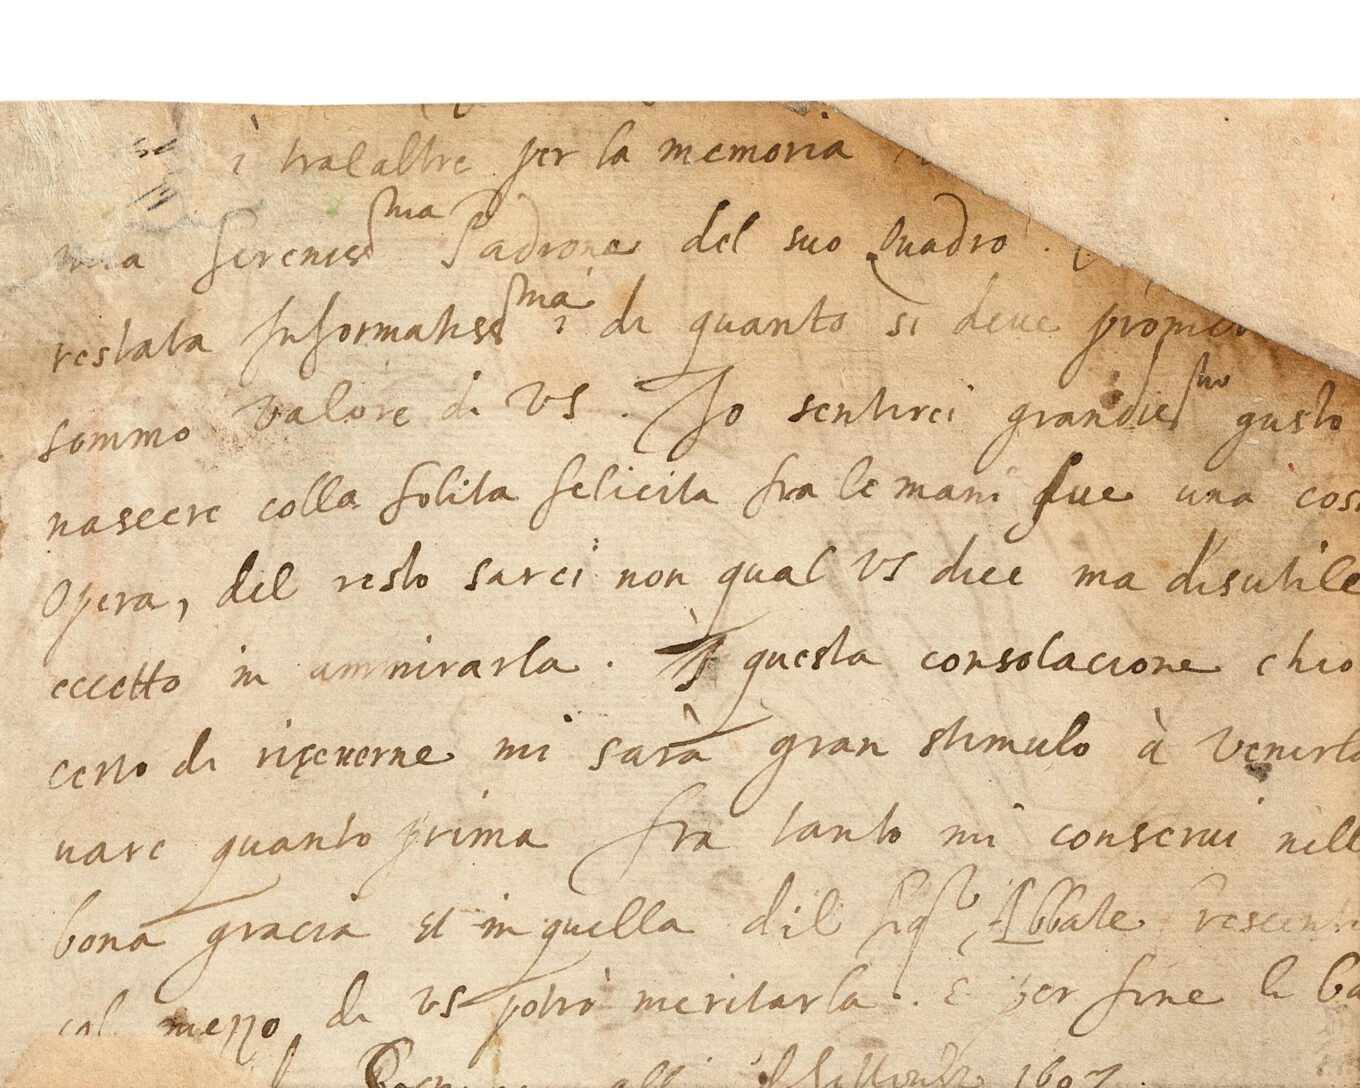 è tralaltre per la memoria
mia Sereniss.ma Padrona del suo Quadro.
restata Informatiss.ma i di quanto si deve
sommo valore di VS. Io sentirei grandiss.mo gusto
nascere colla solita felicita fra le mani sue una cosi
Opera, del resto sarei non qual VS dice ma disutile
eccetto in ammirarla. questa consolacione chio
certo di riceverne mi sarà gran stimulo à venirla
vare quanto prima fra tanto mi conservi nell
bona gracia et in quella dil Sig.r Abbate
col mezzo di VS potrò meritarla. E per fine li ba
alli Settembr